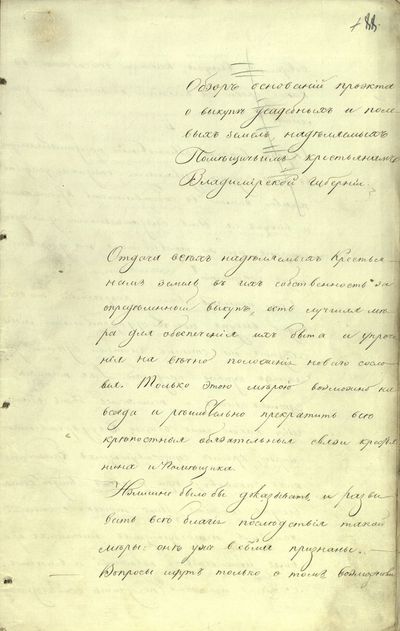 Обзоръ основаній проэкта
о выкупѣ усадебныхъ и поле-
выхъ земель, надѣляемыхъ
Помѣщичьимъ крестьянамъ
Владимірской губерніи
Отдача всѣхъ надѣляемыхъ Крестья-
намъ земель въ ихъ собственность за
опредѣленный выкупъ, есть лучшая мѣ-
ра для обезпеченія ихъ быта и упроче-
нія на вѣчно положенія новаго сосло-
вія. Только этою мѣрою возможно на-
всегда и рѣшительно прекратить всѣ
крѣпостныя обязательныя связи крестья-
нина и Помѣщика.
Излишне было бы доказывать и разви-
вать всѣ благія послѣдствія такой
мѣры: онѣ уже всѣми признаны.
Вопросы идутъ только о томъ,